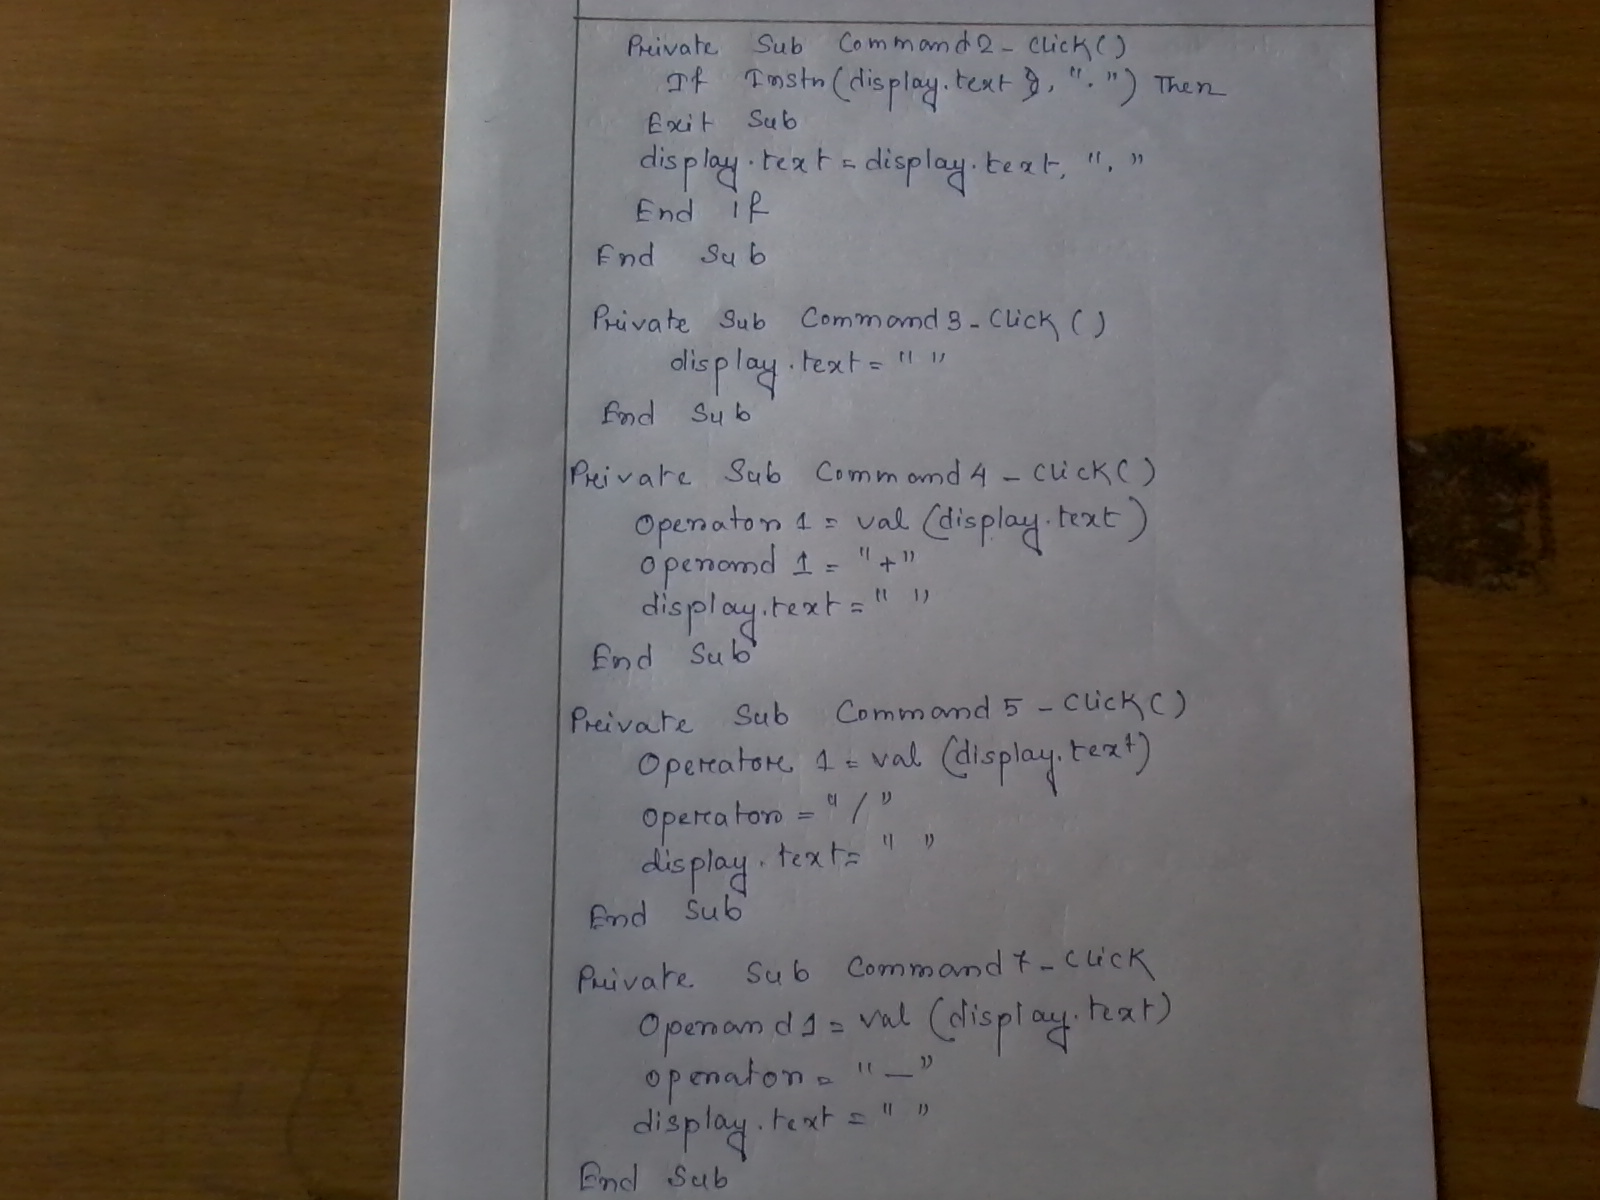 Private Sub Command2_Click()
If Instr(display.text), ".") Then
Exit Sub
display.text = display.text, "."
End if
End Sub
Private Sub Command3_Click()
display.text = " "
End Sub
Private Sub Command4_Click()
Operator1 = val (display.text)
operand1 = "+"
display.text = " "
End Sub
Private Sub Command5_Click()
Operator1 = val (display.text)
operator = "/"
display.text = " "
End Sub
Private Sub Command7_Click
Operand1 = val (display.text)
operator = "-"
display.text = " "
End Sub